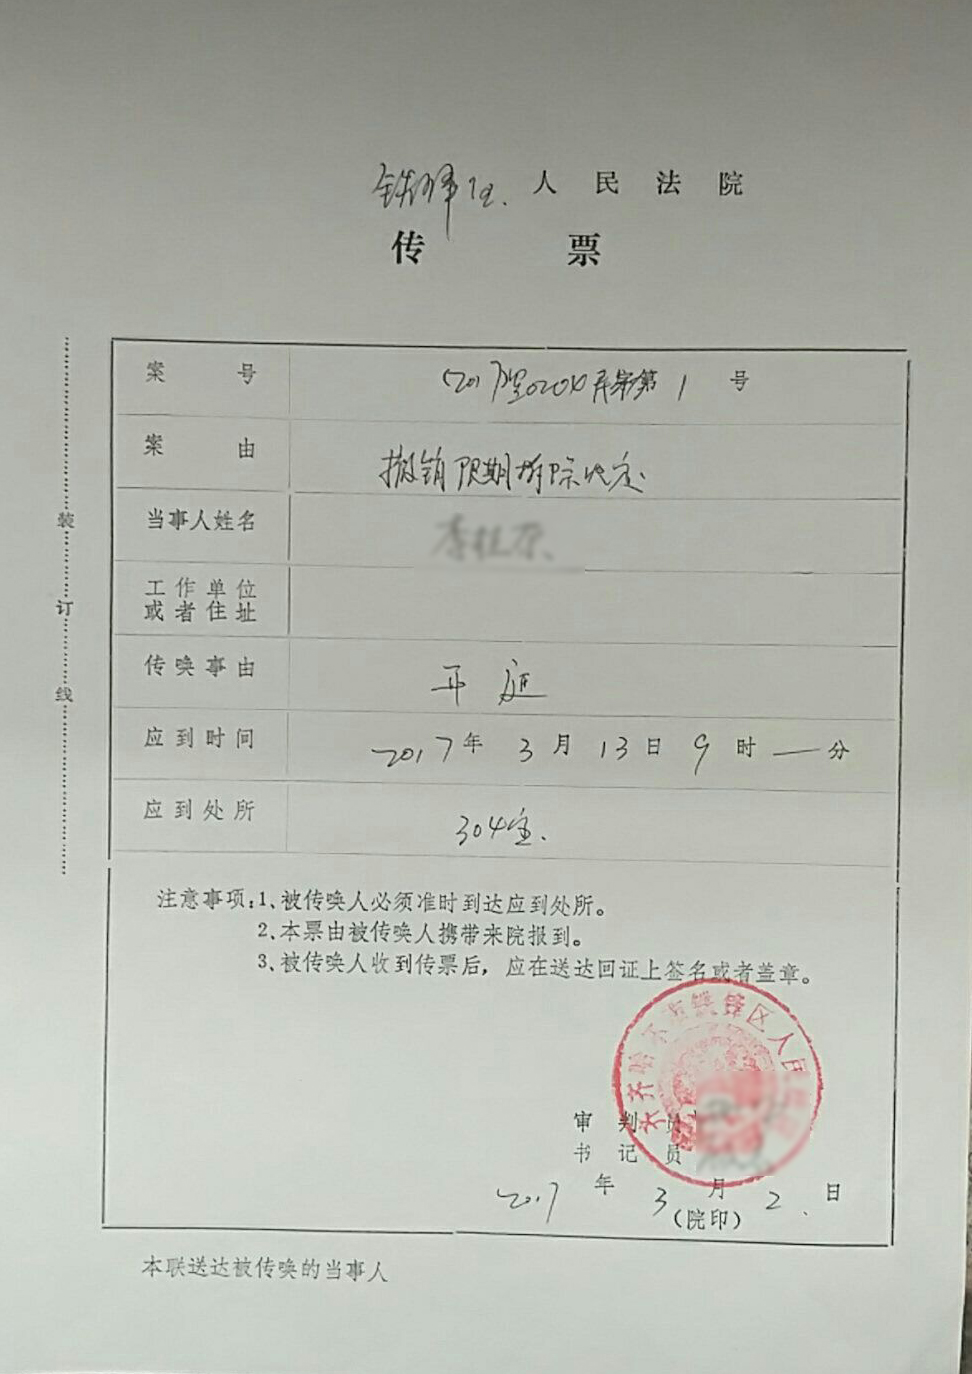 铁锋区 人民法院
传票
案号 (2017)黑0204行初第1号
案由 撤销限期拆除决定
当事人姓名
工作单位
或者住址
传唤事由 开庭
应到时间 2017年3月13日9时—分
应到处所 304室.
注意事项:1、被传唤人必须准时到达应到处所。
2、本票由被传唤人携带来院报到。
3、被传唤人收到传票后,应在送达回证上签名或者盖章。
齐齐哈尔市铁锋区人民
审判员
书记员
2017年3月2日
(院印)
本联送达被传唤的当事人
装订线